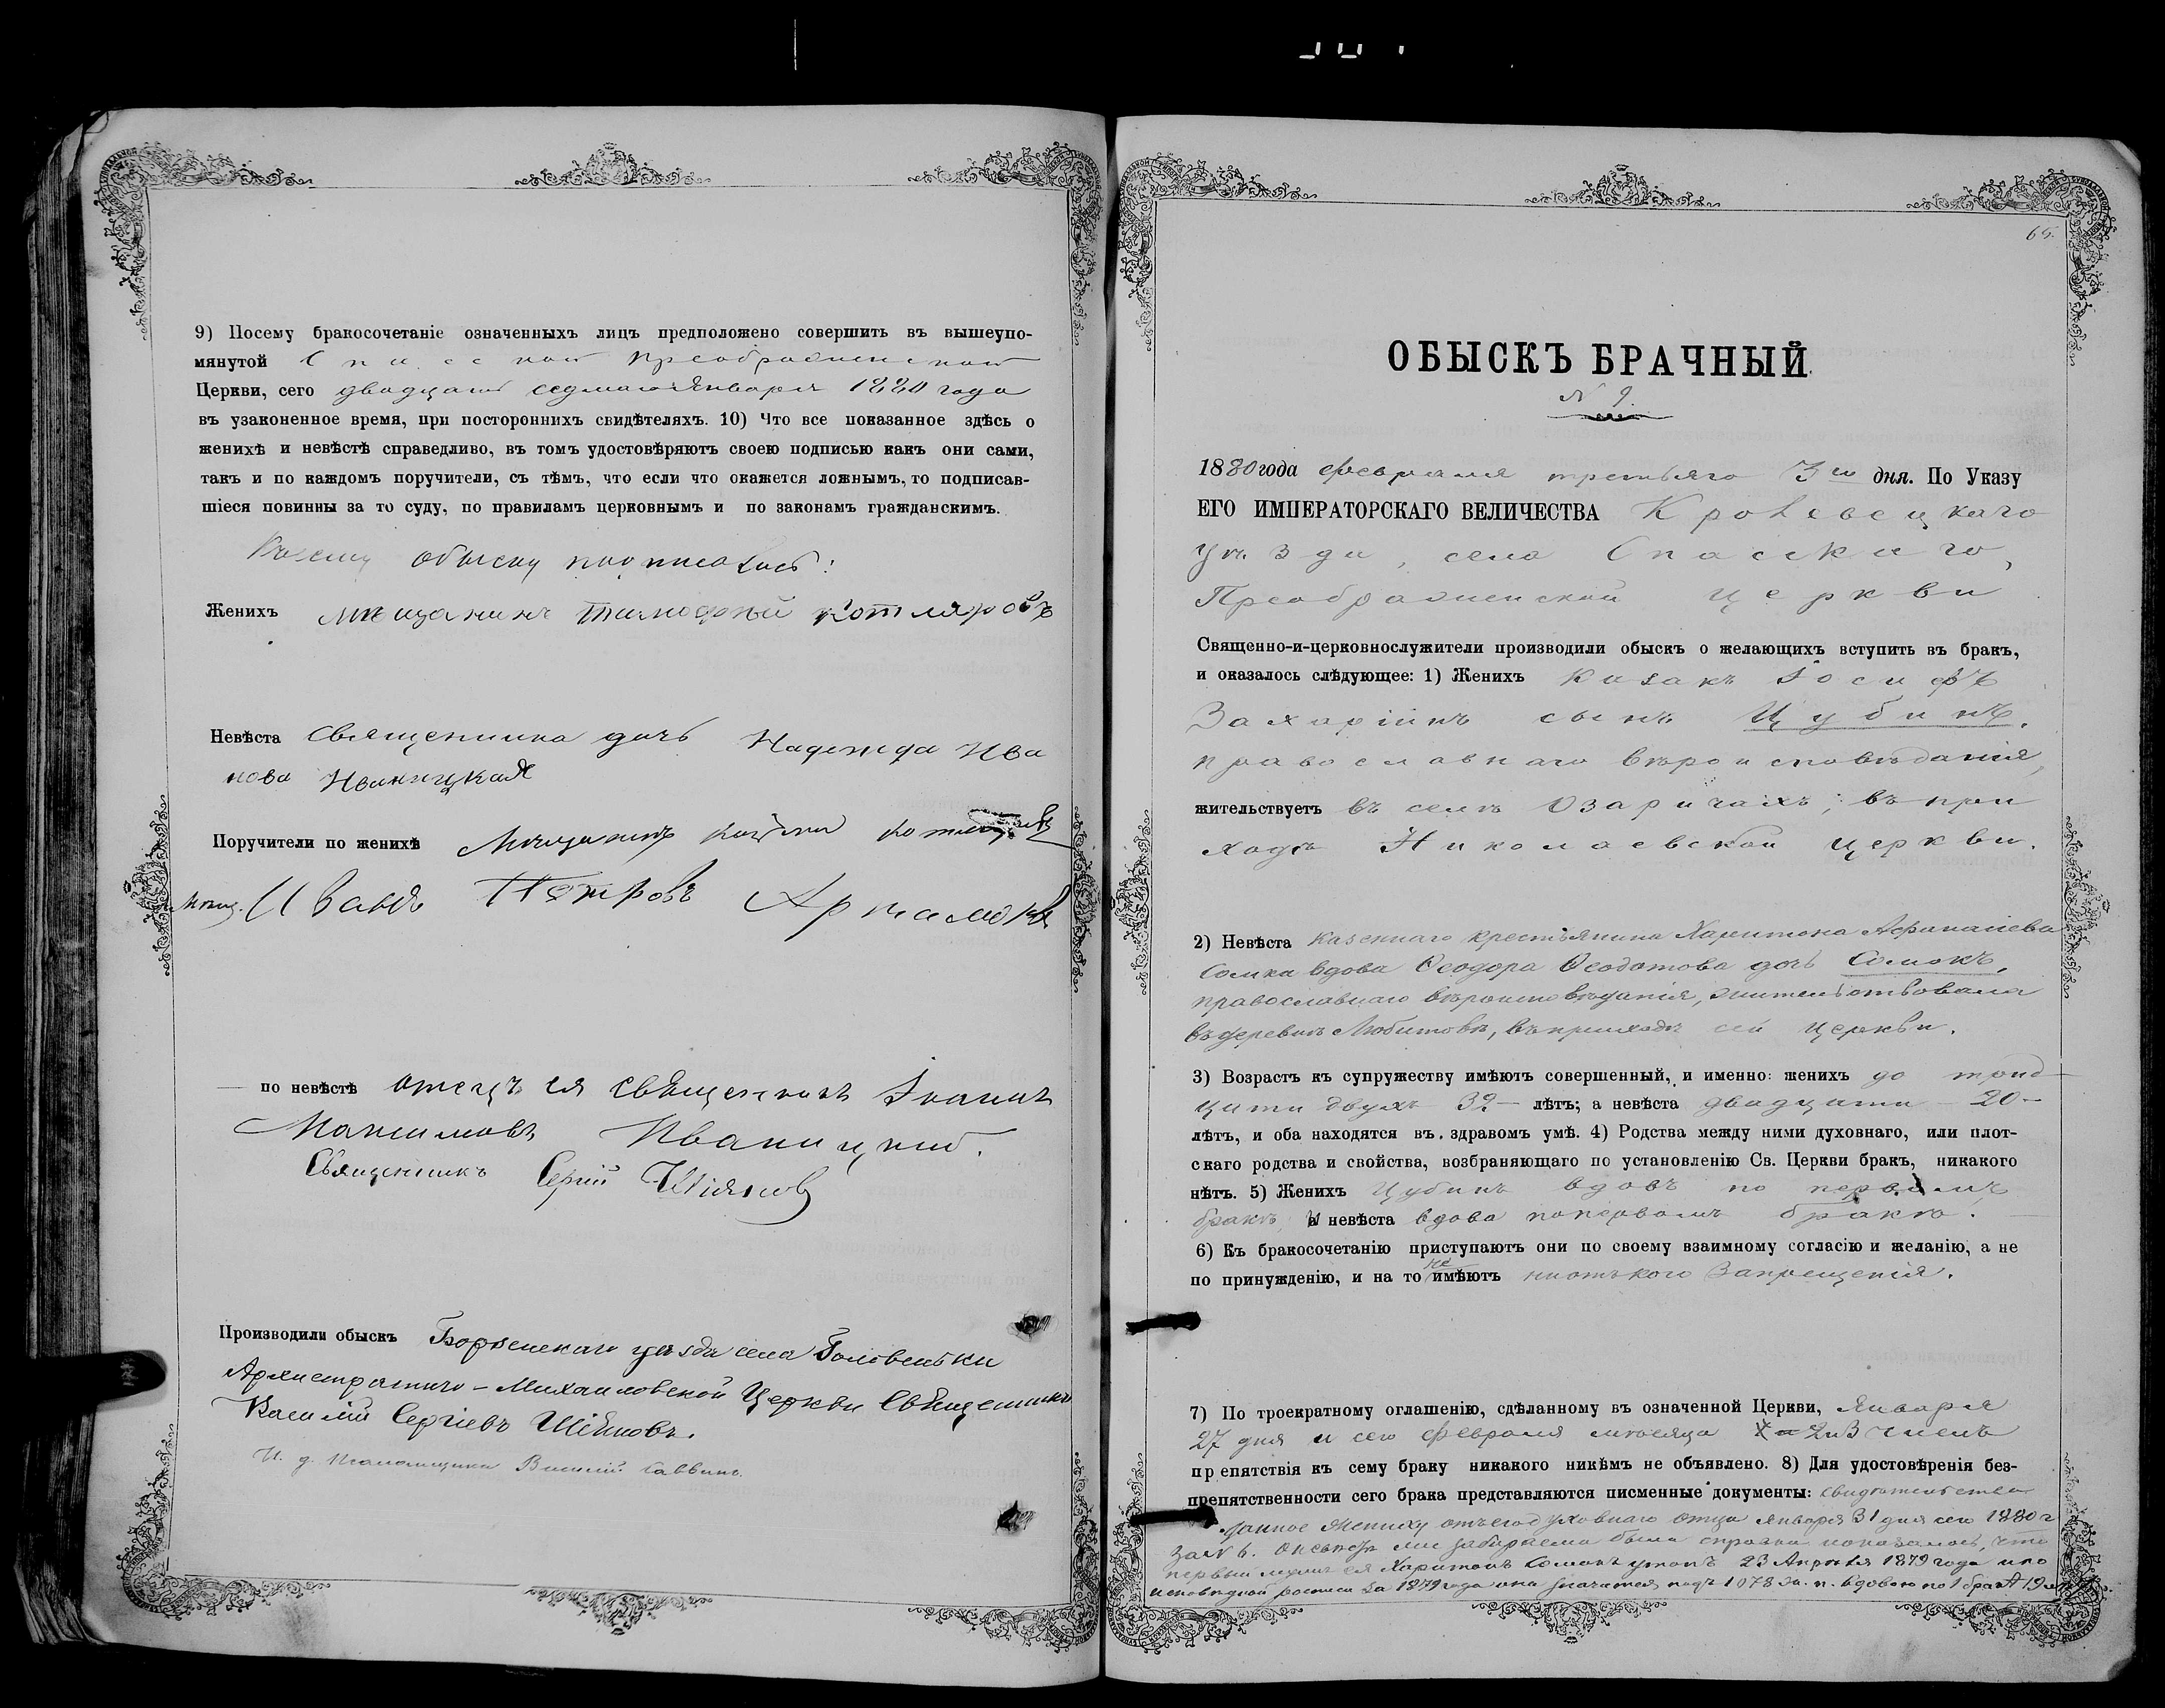 9) Посему бракосочетаніе означенныхъ лицъ предположено совершить въ вышеупо-
мянутой Спасской Преображенской
Церкви, сего двадцать седьмаго Января 1880 года
въ узаконенное время, при постороннихъ свидѣтеляхъ. 10) Что все показанное здѣсь о
женихѣ и невѣстѣ справедливо, въ томъ удостовѣряютъ своею подписью какъ они сами,
такъ и по каждомъ поручители, съ тѣмъ, что если что окажется ложнымъ, то подписав-
шіеся повинны за то суду, по правиламъ церковнымъ и по законамъ гражданскимъ.
Къ сему обыску подписались:
Женихъ мѣщанинъ Тимофѣй Котляровъ
Невѣста Священника дочь Надежда Ива
нова Иваницкая
Поручители по женихѣ Мѣщанинъ
мѣщ. Иванъ Петровъ
по невѣстѣ отецъ ея священникъ Іоаннъ
Максимовъ Иваницкій.
Священникъ Сергій
Производили обыскъ Борзенскаго уѣзда села Головеньки
Архистратиго-Михаиловской Церкви Священникъ
Василій Сергіевъ
И. д. Псаломщика Василій Саввинъ.
65.
ОБЫСКЪ БРАЧНЫЙ
№ 9.
1880 года Февраля третьяго 3го дня. По Указу
ЕГО ИМПЕРАТОРСКАГО ВЕЛИЧЕСТВА Кролевецкаго
уѣзда, села Спасскаго,
Преображенской церкви
Священно-и-церковнослужители производили обыскъ о желающихъ вступить въ бракъ,
и оказалось слѣдующее: 1) Женихъ Казакъ Іосифъ
Захаріинъ сынъ Цубинъ,
православнаго вѣроисповѣданія,
жительствуетъ въ селѣ Озаричахъ, въ при
ходѣ Николаевской церкви.
2) Невѣста казеннаго крестьянина Харитона Афанасіева
Сомка вдова Ѳеодора Ѳеодотова дочь Сомокъ,
православнаго вѣроисповѣданія, жительствовала
въ деревнѣ Любитовѣ, въ приходѣ сей церкви.
3) Возрастъ къ супружеству имѣютъ совершенный, и именно: женихъ до трид-
цати двухъ 32- лѣтъ; а невѣста двадцати - 20-
лѣтъ, и оба находятся въ здравомъ умѣ. 4) Родства между ними духовнаго, или плот-
скаго родства и свойства, возбраняющаго по установленію Св. Церкви бракъ, никакого
нѣтъ. 5) Женихъ Цубинъ вдовъ по первомъ
бракѣ, и невѣста вдова по первомъ бракѣ.
6) Къ бракосочетанію приступаютъ они по своему взаимному согласію и желанію, а не
по принужденію, и на то не имѣютъ ни отъ кого запрещенія.
7) По троекратному оглашенію, сдѣланному въ означенной Церкви, Января
27 дня и сего Февраля мѣсяца 2 и 3 чиселъ
препятствія къ сему браку никакого никѣмъ не объявлено. 8) Для удостовѣренія без-
препятственности сего брака представляются писменные документы: свидѣтельство
данное жениху отъ его духовнаго отца Января 31 дня сего 1880 г.
за № 6. была справка показалось, что
первый мужъ ея Харитонъ Сомокъ умеръ 23 Апрѣля 1879 года и по
исповѣдной росписи за 1879 года она значится подъ 1078 вдовою по 1 бракѣ 19